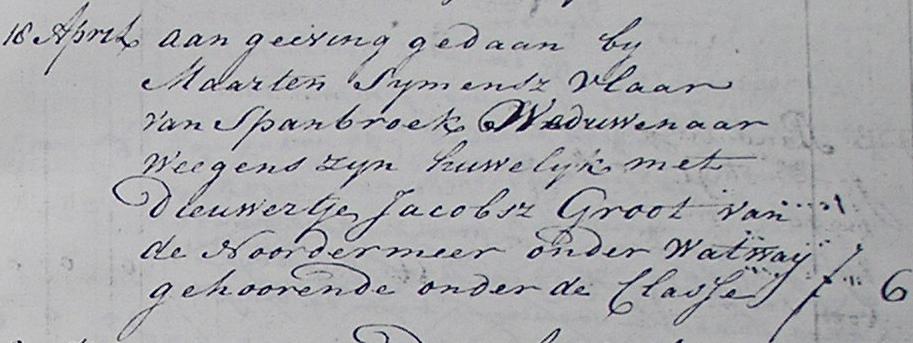 18 April aangeiving gedaan by
Maarten Symensz Vlaar
van Spanbroek Weduwenaar
Weegens zyn huwelyk met
Dieuwertje Jacobsz Groot van
de Noordermeer onder Watway
gehoorende onder de Classe f 6